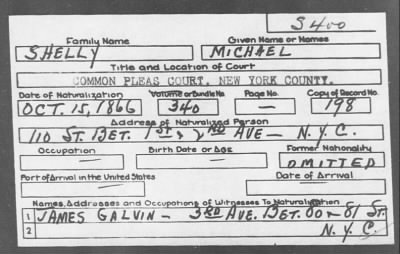 S400
Family Name Given Name or Names
SHELLY MICHAEL
Title and Location of Court
COMMON PLEAS COURT, NEW YORK COUNTY.
Date of Naturalization Volume or Bundle No. Page No. Copy of Record No.
OCT. 15, 1866 340 — 198
Address of Naturalized Person
110 ST. BET. 1ST & 2ND AVE — N.Y.C.
Occupation Birth Date or Age Former Nationality
— — OMITTED
Port of Arrival in the United States Date of Arrival
— —
Names, Addresses and Occupations of Witnesses To Naturalization
1 JAMES GALVIN — 3RD AVE. BET. 80 & 81 ST.
2 N.Y.C.